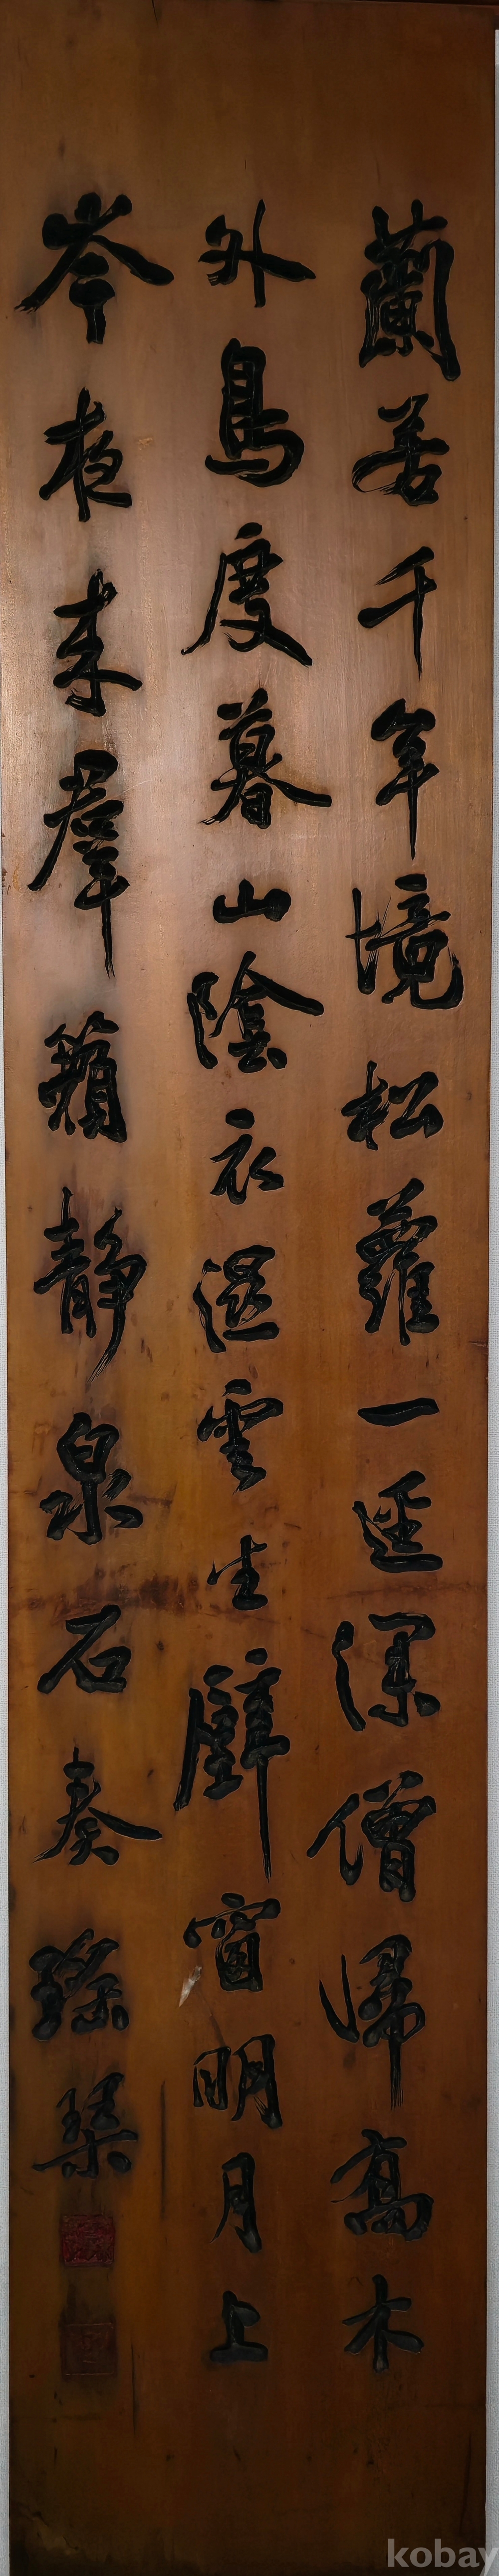 蘭若千年境松蘿一逕深僧歸高木
外鳥度暮山陰衣濕雲生壁窗明月上
岑夜來羣籟靜泉石奏瑤琴
kobay